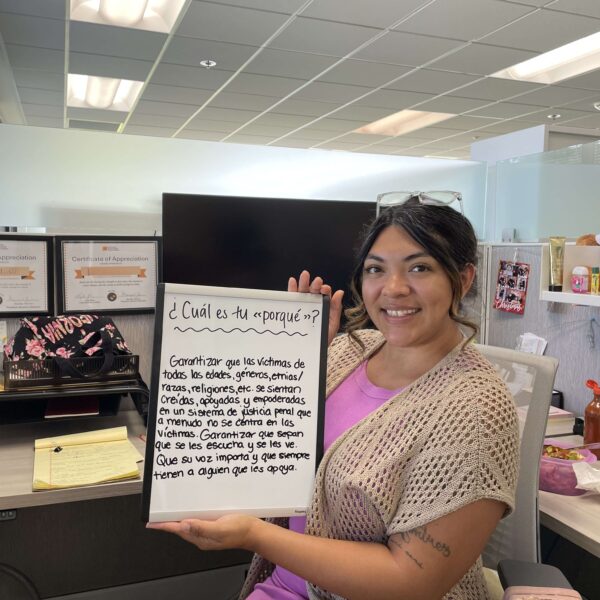 Appreciation
Certificate of Appreciation
¿Cuál es tu «porqué»?
Garantizar que las víctimas de
todas las edades, géneros, etnias/
razas, religiones, etc. se sientan
creídas, apoyadas y empoderadas
en un sistema de justicia penal que
a menudo no se centra en las
víctimas. Garantizar que sepan
que se les escucha y se les ve.
Que su voz importa y que siempre
tienen a alguien que les apoya.